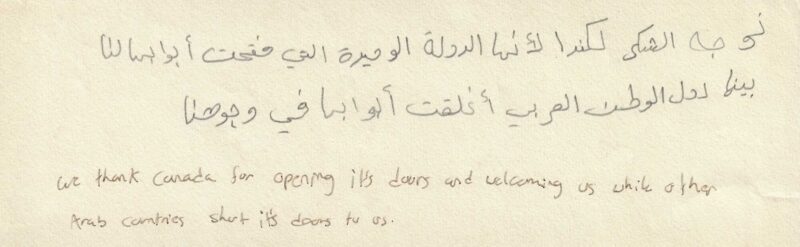 نوجه الشكر لكندا لأنها الدولة الوحيدة التي فتحت أبوابها لنا
بينما دول الوطن العربي أغلقت أبوابها في وجوهنا
we thank Canada for opening it's doors and welcoming us while other
Arab countries shut it's doors to us.